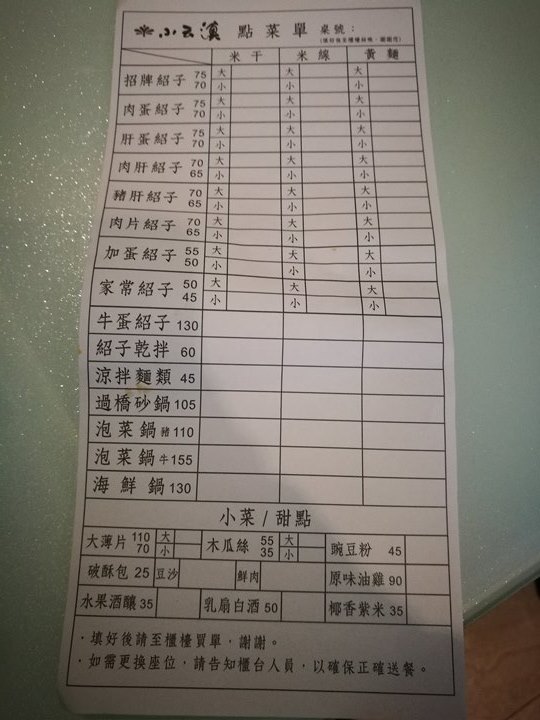 小云滇 點菜單 桌號：
(填好後至櫃檯結帳，謝謝您)
米干 米線 黃麵
招牌紹子 75 大 大 大
70 小 小 小
肉蛋紹子 75 大 大 大
70 小 小 小
肝蛋紹子 75 大 大 大
70 小 小 小
肉肝紹子 70 大 大 大
65 小 小 小
豬肝紹子 70 大 大 大
65 小 小 小
肉片紹子 70 大 大 大
65 小 小 小
加蛋紹子 55 大 大 大
50 小 小 小
家常紹子 50 大 大 大
45 小 小 小
牛蛋紹子 130
紹子乾拌 60
涼拌麵類 45
過橋砂鍋 105
泡菜鍋 豬 110
泡菜鍋 牛 155
海鮮鍋 130
小菜/甜點
大薄片 110 大 木瓜絲 55 大 豌豆粉 45
70 小 35 小
破酥包 25 豆沙 鮮肉 原味油雞 90
水果酒釀 35 乳扇白酒 50 椰香紫米 35
·填好後請至櫃檯買單，謝謝。
·如需更換座位，請告知櫃台人員，以確保正確送餐。